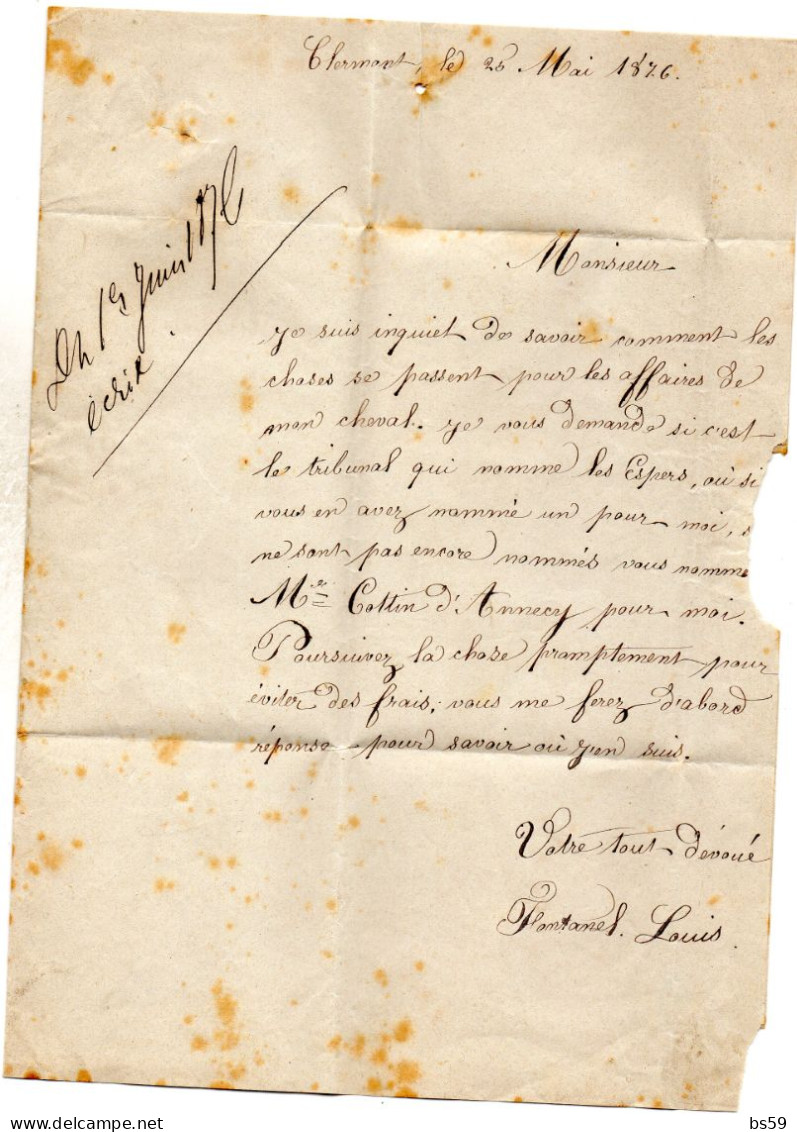 Clermont, le 25 Mai 1876.
Du 1er Juin 1876
écrit.
Monsieur
Je suis inquiet de savoir comment les
choses se passent pour les affaires de
mon cheval. Je vous demande si c'est
le tribunal qui nomme les Espers, où si
vous en avez nommé un pour moi, s
ne sont pas encore nommés vous nomme
Mre Cottin d'Annecy pour moi.
Poursuivez la chose promptement pour
éviter des frais, vous me ferez d'abord
réponse pour savoir où j'en suis.
Votre tout dévoué
Fontanel. Louis.
delcampe.net
bs59